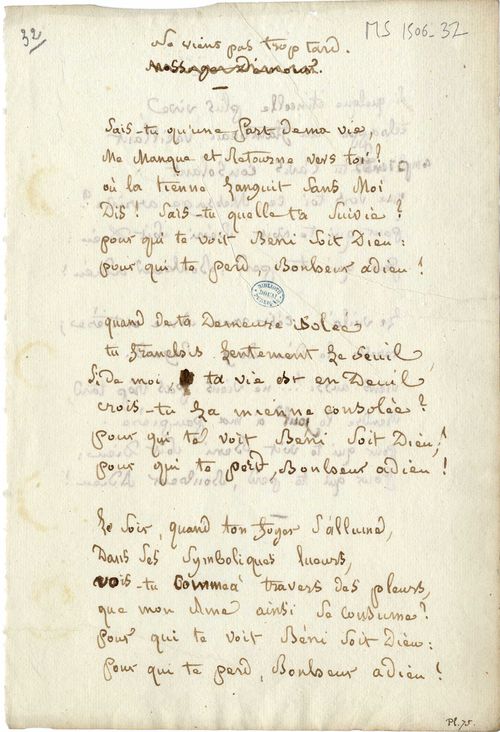 32
MS 1506-32
Ne viens pas trop tard.
Messager d'amour.
Sais-tu qu'une part de ma vie
Me Manque et Retourne vers toi ?
où la tienne languit Sans Moi
Dis ! Sais-tu quelle t'a Suivie ?
pour qui te voit Béni Soit Dieu :
pour qui te perd, Bonheur adieu !
quand de ta Demeure isolée
tu franchis lentement le Seuil,
Si de moi ta vie est en Deuil,
crois-tu la mienne consolée ?
pour qui te voit Béni Soit Dieu,
pour qui te perd, Bonheur adieu !
Le soir, quand ton foyer S'allume,
Dans Ses Symboliques lueurs,
vois-tu comme à travers des pleurs,
que mon Âme ainsi Se consume ?
pour qui te voit Béni Soit Dieu :
pour qui te perd, Bonheur adieu !
Pl. 75.